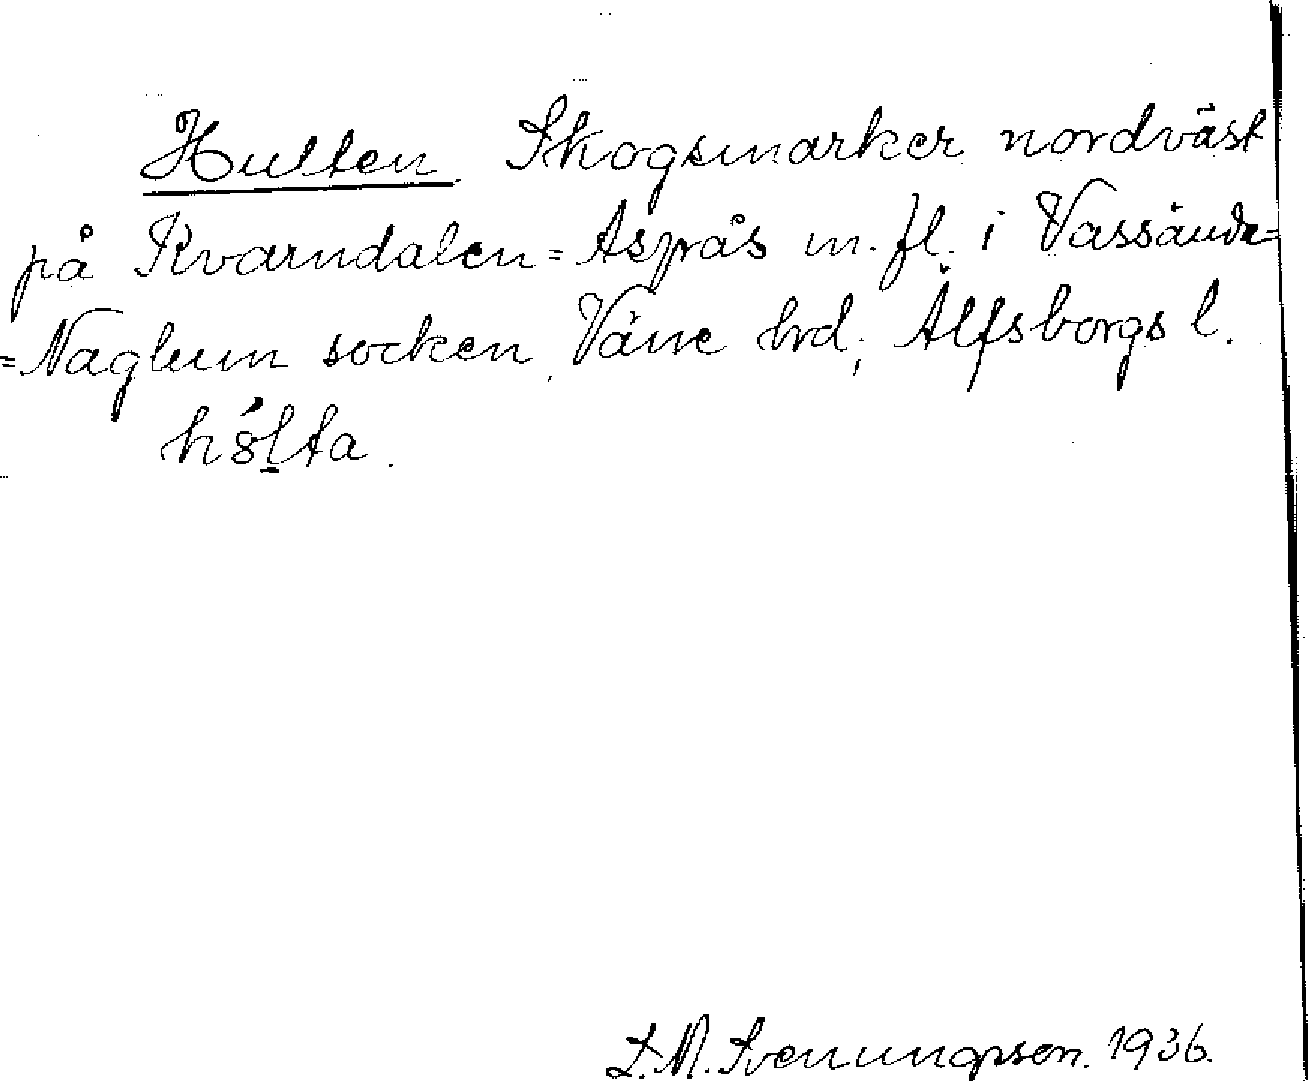 Hulten Skogsmarker nordväst
på Kvarndalen=Asprås m. fl. i Vassända=
=Naglum socken, Väne hrd, Älfsborgs l.
hólta.
L. M. Svenungsson. 1936.